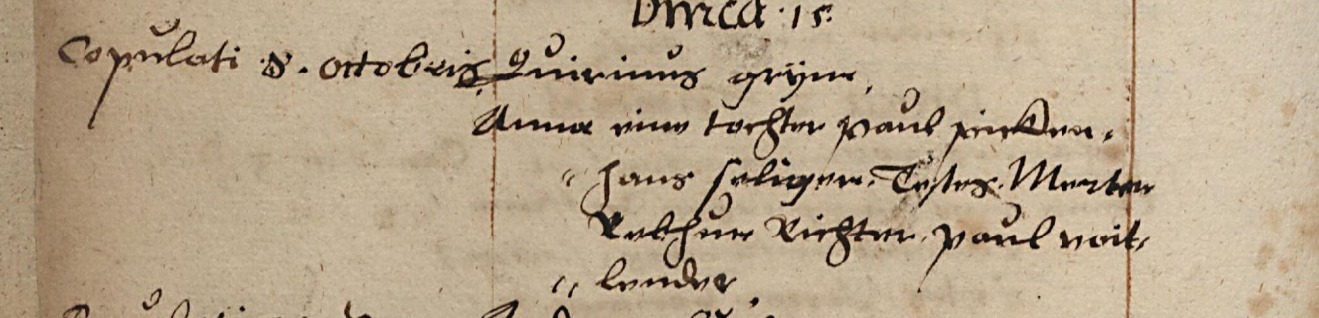 Dnica 15.
Copulati 8. octobris, Quirinus gryne,
Anna eine tochter paul pirken,
„ hans seligen. Testes. Merten
Rebhuen Richter, paul voit,
„ lender